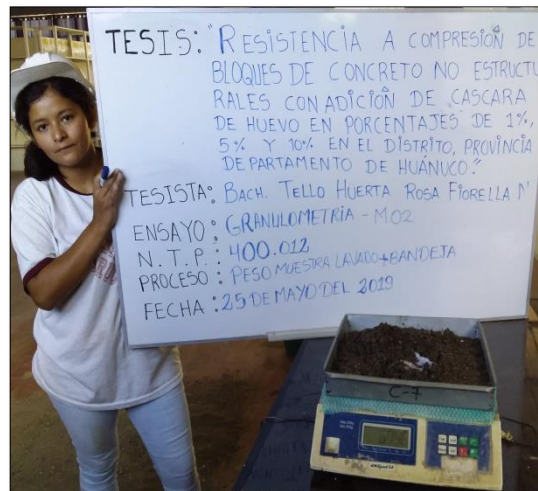 TESIS: "RESISTENCIA A COMPRESIÓN DE
BLOQUES DE CONCRETO NO ESTRUCTU
RALES CON ADICIÓN DE CASCARA
DE HUEVO EN PORCENTAJES DE 1%,
5% Y 10% EN EL DISTRITO, PROVINCIA
DEPARTAMENTO DE HUÁNUCO."
TESISTA: BACH. TELLO HUERTA ROSA FIORELLA N
ENSAYO: GRANULOMETRÍA - M02
N.T.P.: 400.012
PROCESO: PESO MUESTRA LAVADO+BANDEJA
FECHA: 25 DE MAYO DEL 2019
C-7